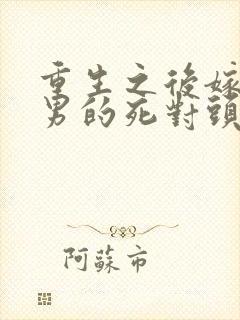 重生之後嫁
男的死對頭
阿蘇市